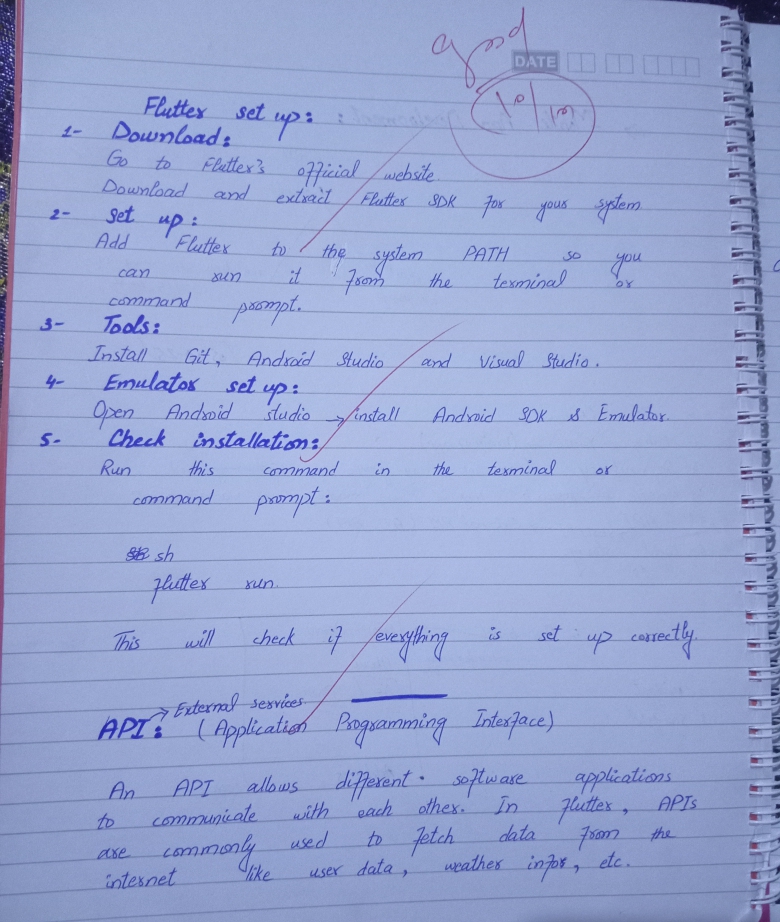 good
DATE
10/10
Flutter set up:
1- Download:
Go to Flutter's official website
Download and extract Flutter SDK for your system
2- set up:
Add Flutter to the system PATH so you
can run it from the terminal or
command prompt.
3- Tools:
Install Git, Android Studio and Visual Studio.
4- Emulator set up:
Open Android studio → install Android SDK & Emulator.
5- Check installation:
Run this command in the terminal or
command prompt:
sh
flutter run.
This will check if everything is set up correctly.
→ External services
API: (Application Programming Interface)
An API allows different software applications
to communicate with each other. In flutter, APIs
are commonly used to fetch data from the
internet like user data, weather infor, etc.